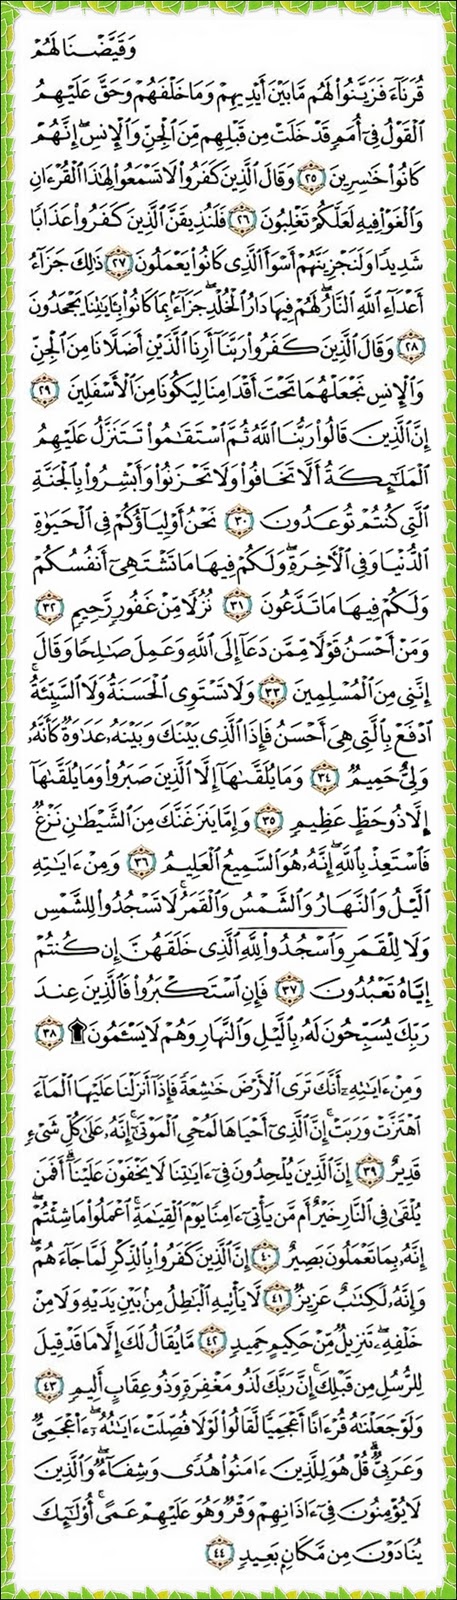 وَقَيَّضْنَا لَهُمْ
قُرَنَآءَ فَزَيَّنُوا۟ لَهُم مَّا بَيْنَ أَيْدِيهِمْ وَمَا خَلْفَهُمْ وَحَقَّ عَلَيْهِمُ
ٱلْقَوْلُ فِىٓ أُمَمٍ قَدْ خَلَتْ مِن قَبْلِهِم مِّنَ ٱلْجِنِّ وَٱلْإِنسِ ۖ إِنَّهُمْ
كَانُوا۟ خَـٰسِرِينَ ٢٥ وَقَالَ ٱلَّذِينَ كَفَرُوا۟ لَا تَسْمَعُوا۟ لِهَـٰذَا ٱلْقُرْءَانِ
وَٱلْغَوْا۟ فِيهِ لَعَلَّكُمْ تَغْلِبُونَ ٢٦ فَلَنُذِيقَنَّ ٱلَّذِينَ كَفَرُوا۟ عَذَابًا
شَدِيدًا وَلَنَجْزِيَنَّهُمْ أَسْوَأَ ٱلَّذِى كَانُوا۟ يَعْمَلُونَ ٢٧ ذَٰلِكَ جَزَآءُ
أَعْدَآءِ ٱللَّهِ ٱلنَّارُ ۖ لَهُمْ فِيهَا دَارُ ٱلْخُلْدِ ۖ جَزَآءًۢ بِمَا كَانُوا۟ بِـَٔايَـٰتِنَا يَجْحَدُونَ
٢٨ وَقَالَ ٱلَّذِينَ كَفَرُوا۟ رَبَّنَآ أَرِنَا ٱلَّذَيْنِ أَضَلَّانَا مِنَ ٱلْجِنِّ
وَٱلْإِنسِ نَجْعَلْهُمَا تَحْتَ أَقْدَامِنَا لِيَكُونَا مِنَ ٱلْأَسْفَلِينَ ٢٩
إِنَّ ٱلَّذِينَ قَالُوا۟ رَبُّنَا ٱللَّهُ ثُمَّ ٱسْتَقَـٰمُوا۟ تَتَنَزَّلُ عَلَيْهِمُ
ٱلْمَلَـٰٓئِكَةُ أَلَّا تَخَافُوا۟ وَلَا تَحْزَنُوا۟ وَأَبْشِرُوا۟ بِٱلْجَنَّةِ
ٱلَّتِى كُنتُمْ تُوعَدُونَ ٣٠ نَحْنُ أَوْلِيَآؤُكُمْ فِى ٱلْحَيَوٰةِ
ٱلدُّنْيَا وَفِى ٱلْـَٔاخِرَةِ ۖ وَلَكُمْ فِيهَا مَا تَشْتَهِىٓ أَنفُسُكُمْ
وَلَكُمْ فِيهَا مَا تَدَّعُونَ ٣١ نُزُلًا مِّنْ غَفُورٍ رَّحِيمٍ ٣٢
وَمَنْ أَحْسَنُ قَوْلًا مِّمَّن دَعَآ إِلَى ٱللَّهِ وَعَمِلَ صَـٰلِحًا وَقَالَ
إِنَّنِى مِنَ ٱلْمُسْلِمِينَ ٣٣ وَلَا تَسْتَوِى ٱلْحَسَنَةُ وَلَا ٱلسَّيِّئَةُ ۚ
ٱدْفَعْ بِٱلَّتِى هِىَ أَحْسَنُ فَإِذَا ٱلَّذِى بَيْنَكَ وَبَيْنَهُۥ عَدَٰوَةٌ كَأَنَّهُۥ
وَلِىٌّ حَمِيمٌ ٣٤ وَمَا يُلَقَّىٰهَآ إِلَّا ٱلَّذِينَ صَبَرُوا۟ وَمَا يُلَقَّىٰهَآ
إِلَّا ذُو حَظٍّ عَظِيمٍ ٣٥ وَإِمَّا يَنزَغَنَّكَ مِنَ ٱلشَّيْطَـٰنِ نَزْغٌ
فَٱسْتَعِذْ بِٱللَّهِ ۖ إِنَّهُۥ هُوَ ٱلسَّمِيعُ ٱلْعَلِيمُ ٣٦ وَمِنْ ءَايَـٰتِهِ
ٱلَّيْلُ وَٱلنَّهَارُ وَٱلشَّمْسُ وَٱلْقَمَرُ ۚ لَا تَسْجُدُوا۟ لِلشَّمْسِ
وَلَا لِلْقَمَرِ وَٱسْجُدُوا۟ لِلَّهِ ٱلَّذِى خَلَقَهُنَّ إِن كُنتُمْ
إِيَّاهُ تَعْبُدُونَ ٣٧ فَإِنِ ٱسْتَكْبَرُوا۟ فَٱلَّذِينَ عِندَ
رَبِّكَ يُسَبِّحُونَ لَهُۥ بِٱلَّيْلِ وَٱلنَّهَارِ وَهُمْ لَا يَسْـَٔمُونَ ۩ ٣٨
وَمِنْ ءَايَـٰتِهِۦٓ أَنَّكَ تَرَى ٱلْأَرْضَ خَـٰشِعَةً فَإِذَآ أَنزَلْنَا عَلَيْهَا ٱلْمَآءَ
ٱهْتَزَّتْ وَرَبَتْ ۚ إِنَّ ٱلَّذِىٓ أَحْيَاهَا لَمُحْىِ ٱلْمَوْتَىٰٓ ۚ إِنَّهُۥ عَلَىٰ كُلِّ شَىْءٍ
قَدِيرٌ ٣٩ إِنَّ ٱلَّذِينَ يُلْحِدُونَ فِىٓ ءَايَـٰتِنَا لَا يَخْفَوْنَ عَلَيْنَآ ۗ أَفَمَن
يُلْقَىٰ فِى ٱلنَّارِ خَيْرٌ أَم مَّن يَأْتِىٓ ءَامِنًا يَوْمَ ٱلْقِيَـٰمَةِ ۚ ٱعْمَلُوا۟ مَا شِئْتُمْ ۖ
إِنَّهُۥ بِمَا تَعْمَلُونَ بَصِيرٌ ٤٠ إِنَّ ٱلَّذِينَ كَفَرُوا۟ بِٱلذِّكْرِ لَمَّا جَآءَهُمْ ۖ
وَإِنَّهُۥ لَكِتَـٰبٌ عَزِيزٌ ٤١ لَّا يَأْتِيهِ ٱلْبَـٰطِلُ مِنۢ بَيْنِ يَدَيْهِ وَلَا مِنْ
خَلْفِهِۦ ۖ تَنزِيلٌ مِّنْ حَكِيمٍ حَمِيدٍ ٤٢ مَّا يُقَالُ لَكَ إِلَّا مَا قَدْ قِيلَ
لِلرُّسُلِ مِن قَبْلِكَ ۚ إِنَّ رَبَّكَ لَذُو مَغْفِرَةٍ وَذُو عِقَابٍ أَلِيمٍ ٤٣
وَلَوْ جَعَلْنَـٰهُ قُرْءَانًا أَعْجَمِيًّا لَّقَالُوا۟ لَوْلَا فُصِّلَتْ ءَايَـٰتُهُۥٓ ۖ ءَا۬عْجَمِىٌّ
وَعَرَبِىٌّ ۗ قُلْ هُوَ لِلَّذِينَ ءَامَنُوا۟ هُدًى وَشِفَآءٌ ۖ وَٱلَّذِينَ
لَا يُؤْمِنُونَ فِىٓ ءَاذَانِهِمْ وَقْرٌ وَهُوَ عَلَيْهِمْ عَمًى ۚ أُو۟لَـٰٓئِكَ
يُنَادَوْنَ مِن مَّكَانٍۭ بَعِيدٍ ٤٤